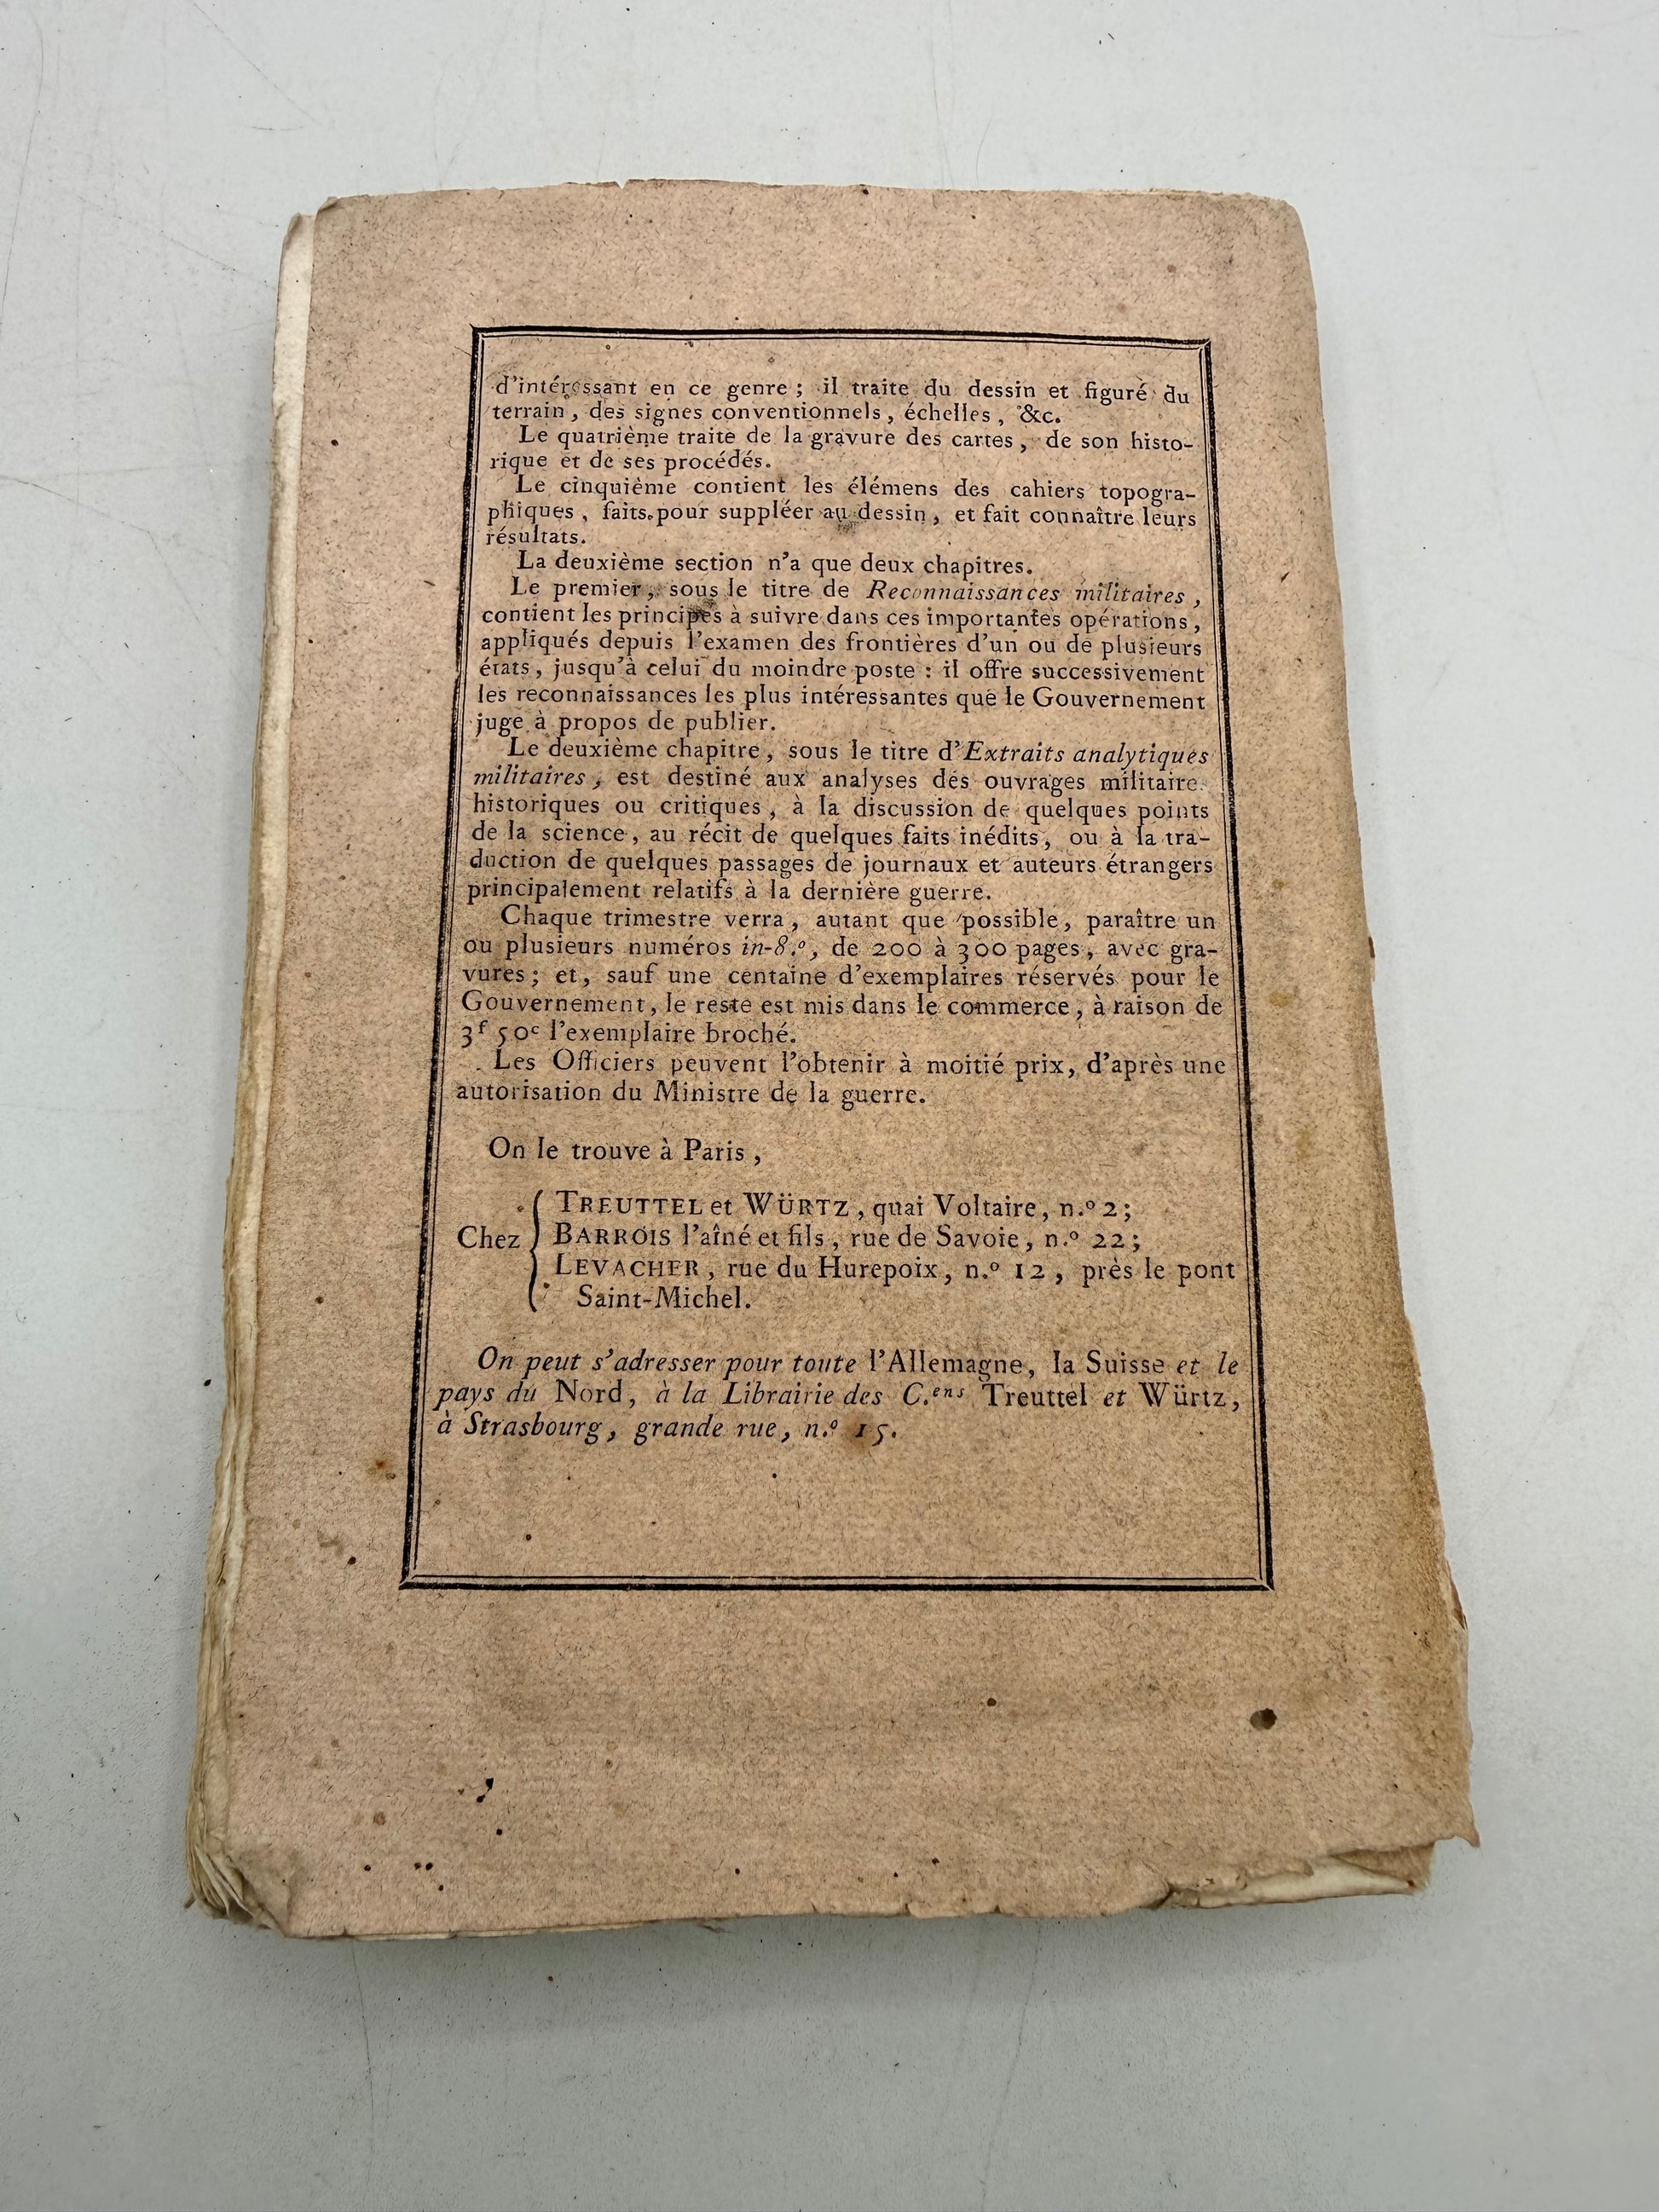 d'intéressant en ce genre ; il traite du dessin et figuré du
terrain, des signes conventionnels, échelles, &c.
Le quatrième traite de la gravure des cartes, de son histo-
rique et de ses procédés.
Le cinquième contient les élémens des cahiers topogra-
phiques, faits pour suppléer au dessin, et fait connaître leurs
résultats.
La deuxième section n'a que deux chapitres.
Le premier, sous le titre de Reconnaissances militaires,
contient les principes à suivre dans ces importantes opérations,
appliqués depuis l'examen des frontières d'un ou de plusieurs
états, jusqu'à celui du moindre poste : il offre successivement
les reconnaissances les plus intéressantes que le Gouvernement
juge à propos de publier.
Le deuxième chapitre, sous le titre d'Extraits analytiques
militaires, est destiné aux analyses des ouvrages militaire
historiques ou critiques, à la discussion de quelques points
de la science, au récit de quelques faits inédits, ou à la tra-
duction de quelques passages de journaux et auteurs étrangers
principalement relatifs à la dernière guerre.
Chaque trimestre verra, autant que possible, paraître un
ou plusieurs numéros in-8.º, de 200 à 300 pages, avec gra-
vures; et, sauf une centaine d'exemplaires réservés pour le
Gouvernement, le reste est mis dans le commerce, à raison de
3ᶠ 50ᶜ l'exemplaire broché.
Les Officiers peuvent l'obtenir à moitié prix, d'après une
autorisation du Ministre de la guerre.
On le trouve à Paris,
Chez { TREUTTEL et WÜRTZ, quai Voltaire, n.º 2;
BARROIS l'aîné et fils, rue de Savoie, n.º 22;
LEVACHER, rue du Hurepoix, n.º 12, près le pont
Saint-Michel.
On peut s'adresser pour toute l'Allemagne, la Suisse et le
pays du Nord, à la Librairie des C.ᵉⁿˢ Treuttel et Würtz,
à Strasbourg, grande rue, n.º 15.